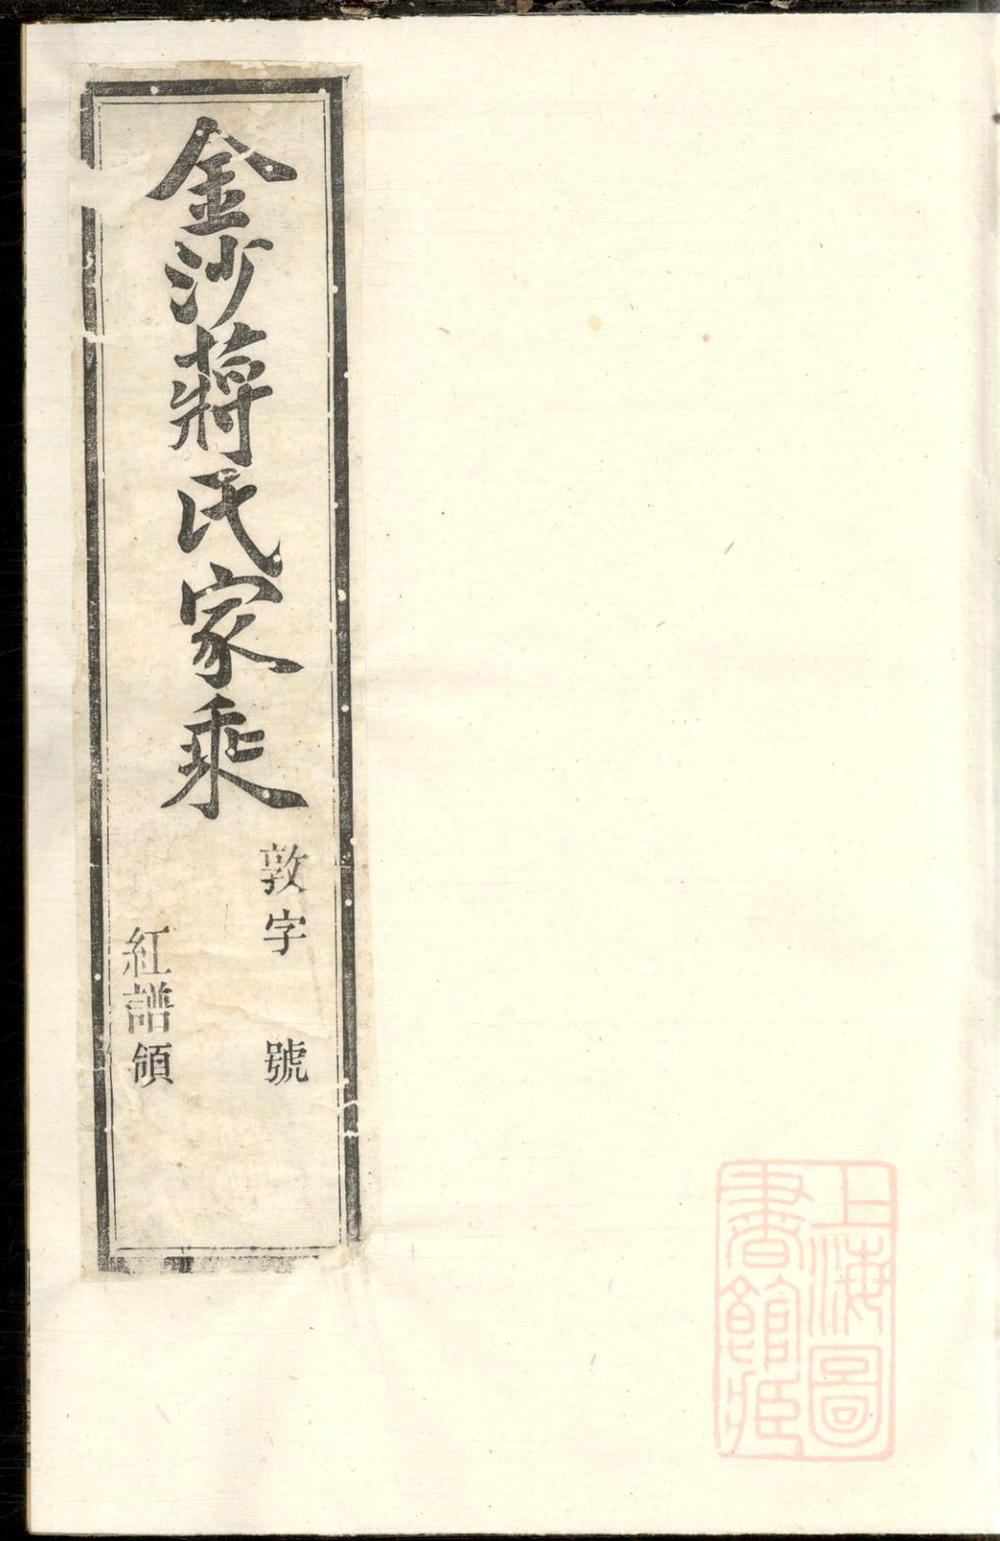 金沙蔣氏家乘
敦字 號
紅譜領
上海圖
書館臧